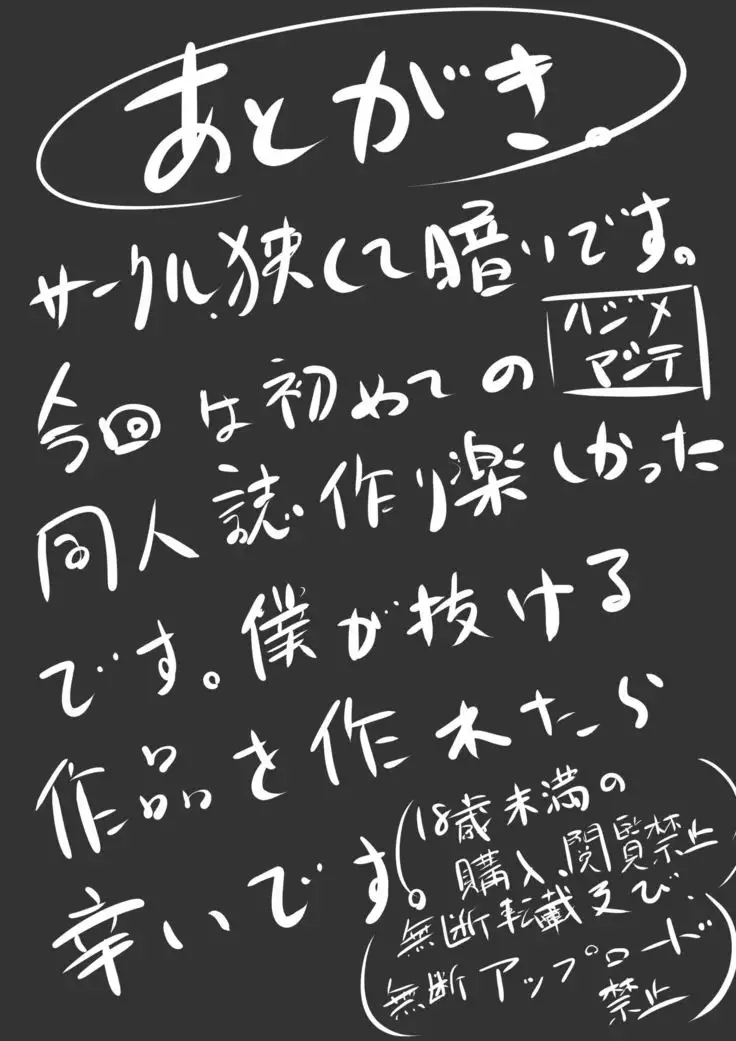 あとがき。
サークル.狭くて暗いです。
今回は初めての
ハジメ
マシテ
同人誌作り楽しかった
です。僕が抜ける
作品を作れたら
辛いです。
(18歳未満の
購入、閲覧禁止)
(無断転載及び
無断アップロード
禁止)